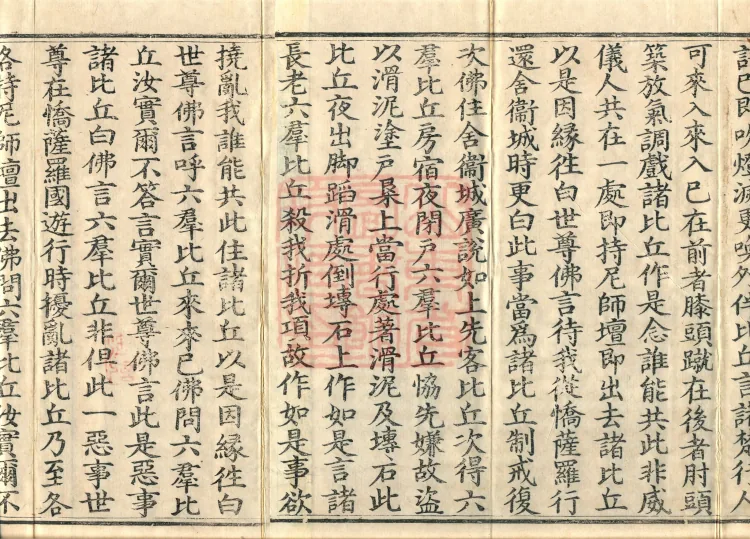 已即吹燈滅更喚外住比丘言諸梵行人
可來入來入已在前者膝頭蹴在後者肘頭
築放氣調戲諸比丘作是念誰能共此非威
儀人共在一處即持尼師壇即出去諸比丘
以是因緣往白世尊佛言待我從憍薩羅行
還舍衞城時更白此事當爲諸比丘制戒復
次佛住舍衞城廣說如上先客比丘次得六
羣比丘房宿夜閉戶六羣比丘恊先嫌故盜
以滑泥塗戶上當行處著滑泥及塼石此
比丘夜出脚蹈滑處倒塼石上作如是言諸
長老六羣比丘殺我折我項故作如是事欲
撓亂我誰能共此住諸比丘以是因緣往白
世尊佛言呼六羣比丘來來已佛問六羣比
丘汝實爾不答言實爾世尊佛言此是惡事
諸比丘白佛言六羣比丘非但此一惡事世
尊在憍薩羅國遊行時擾亂諸比丘乃至各
各持尼師壇出去佛問六羣比丘汝實爾不